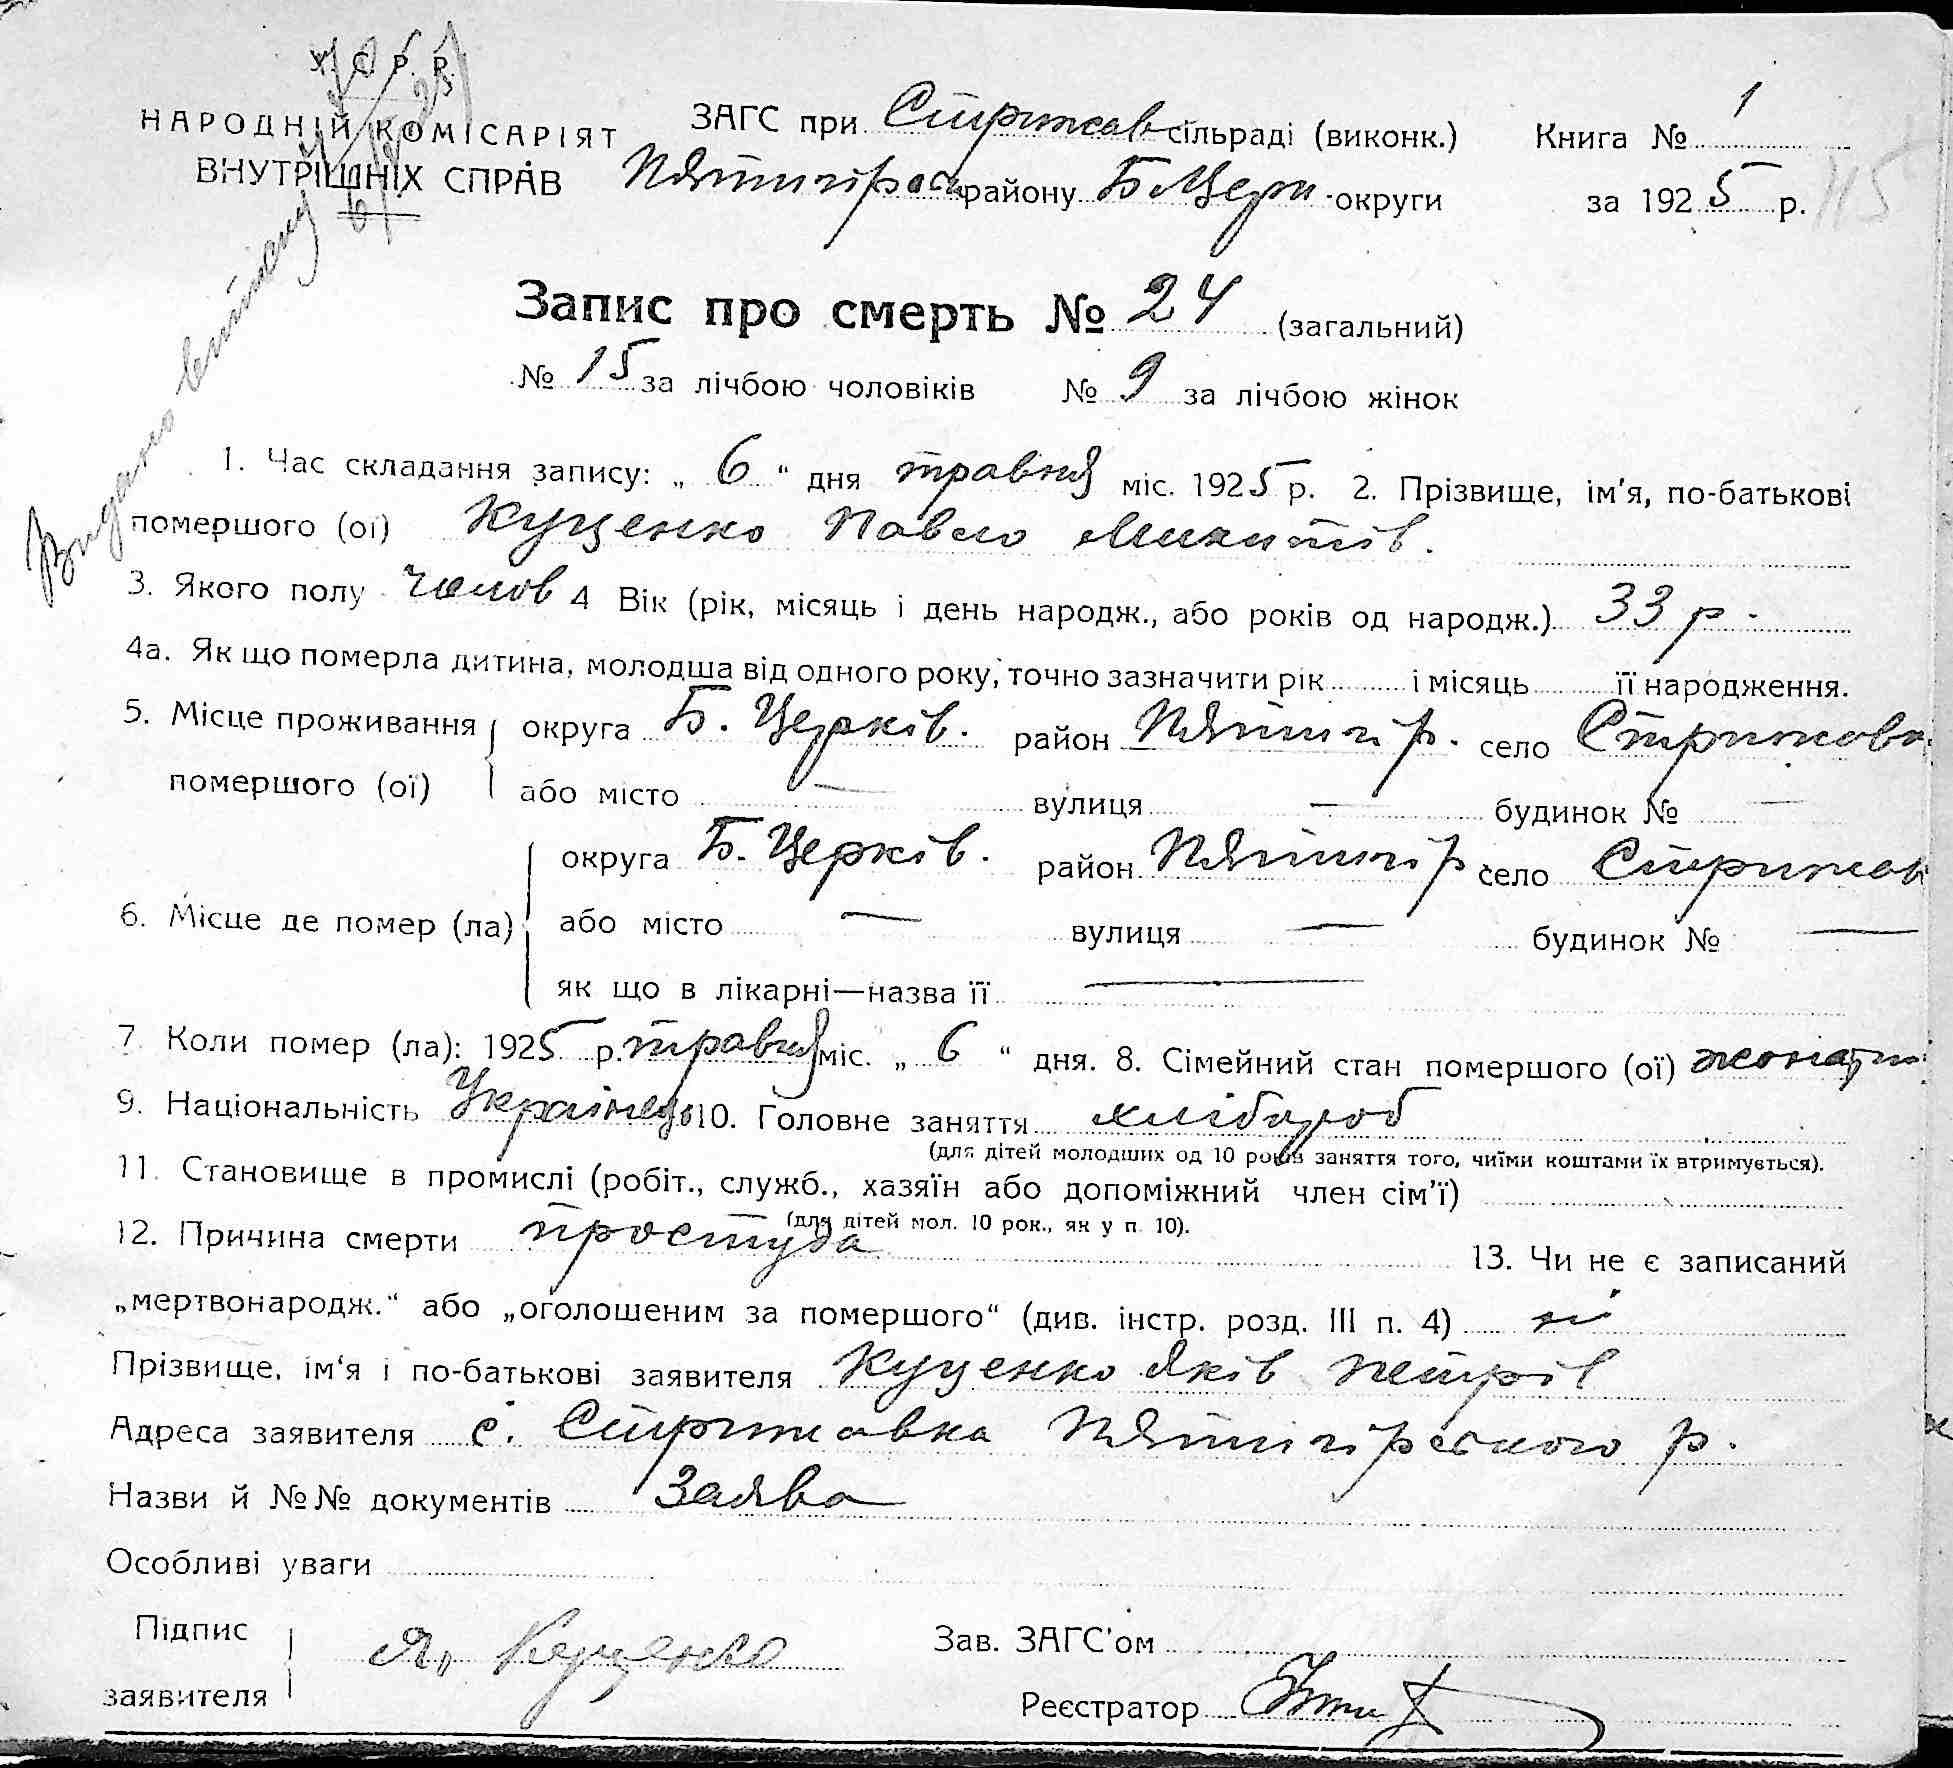 У. С. Р. Р.
НАРОДНІЙ КОМІСАРІЯТ
ВНУТРІШНІХ СПРАВ
ЗАГС при Стрижав сільраді (виконк.) Книга № 1
Пятигірськ району Б Церк. округи за 1925 р. 115
Видано витяг
Запис про смерть № 24 (загальний)
№ 15 за лічбою чоловіків № 9 за лічбою жінок
1. Час складання запису: „ 6 “ дня травня міс. 1925 р. 2. Прізвище, ім'я, по-батькові
помершого (ої) Куценко Павло Микитів.
3. Якого полу чолов 4 Вік (рік, місяць і день народж., або років од народж.) 33 р.
4а. Як що померла дитина, молодша від одного року, точно зазначити рік і місяць її народження.
5. Місце проживання помершого (ої) округа Б. Церків. район Пятигір. село Стрижавк
або місто — вулиця — будинок № —
6. Місце де помер (ла) округа Б. Церків. район Пятигір село Стрижав
або місто — вулиця — будинок № —
як що в лікарні—назва її —
7 Коли помер (ла): 1925 р. травня міс. „ 6 “ дня. 8. Сімейний стан помершого (ої) жонатий
9. Національність Українець 10. Головне заняття хлібороб
(для дітей молодших од 10 років заняття того, чиїми коштами їх втримується).
11. Становище в промислі (робіт., служб., хазяїн або допоміжний член сім'ї)
(для дітей мол. 10 рок., як у п. 10).
12. Причина смерти простуда 13. Чи не є записаний
„мертвонародж.“ або „оголошеним за помершого“ (див. інстр. розд. III п. 4) ні
Прізвище, ім'я і по-батькові заявителя Куценко Яків Петрів
Адреса заявителя с. Стрижавка Пятигірського р.
Назви й №№ документів Заява
Особливі уваги
Підпис заявителя Я. Куценко
Зав. ЗАГС'ом
Реєстратор